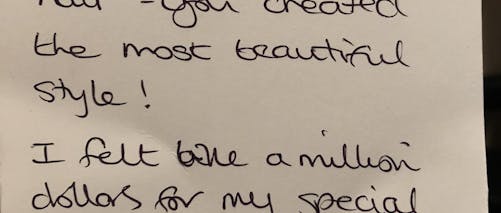 - you created
the most beautiful
style!
I felt like a million
dollars for my special